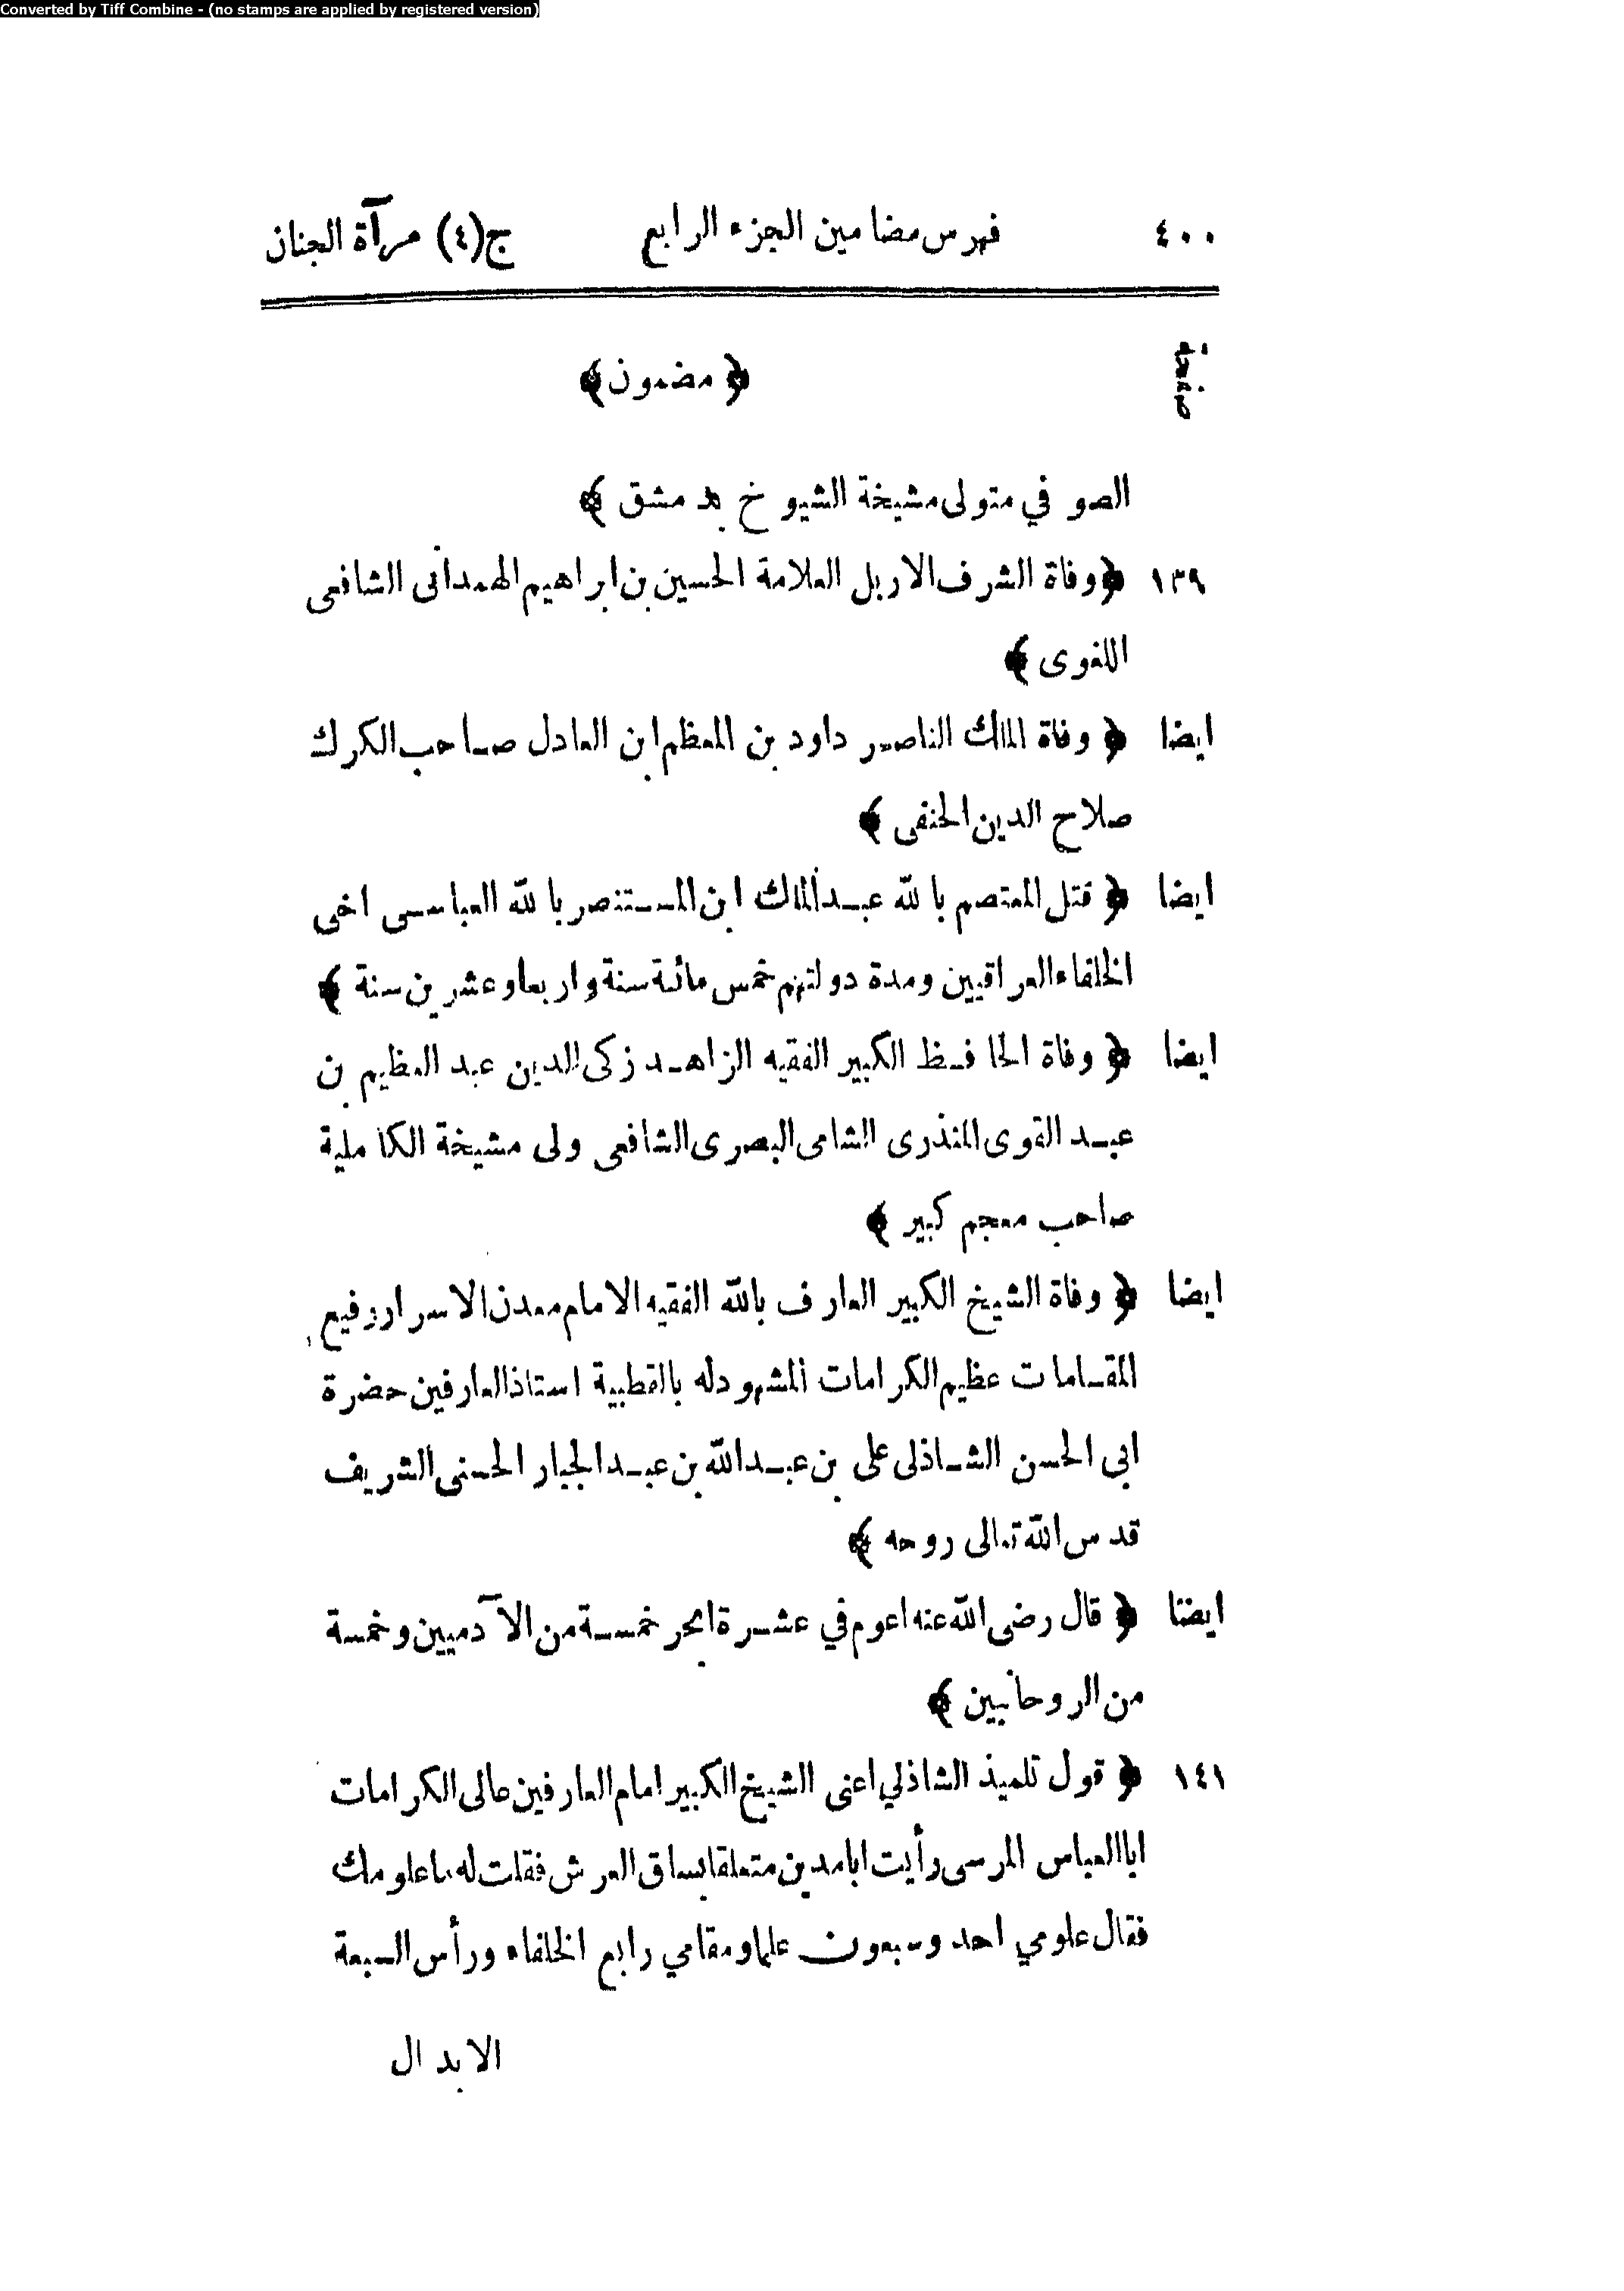 Converted by Tiff Combine - (no stamps are applied by registered version)
٤٠٠ فهرس مضامين الجزء الرابع ج(٤) مرآة الجنان
صفحة ﴿ مضمون ﴾
الصوفي متولى مشيخة الشيوخ بدمشق ﴾
١٣٩ ﴿ وفاة الشرف الاربل العلامة الحسين بن ابراهيم الهمدانى الشافعى
اللغوى ﴾
ايضا ﴿ وفاة الملك الناصر داود بن المعظم ابن العادل صاحب الكرك
صلاح الدين الحنفى ﴾
ايضا ﴿ قتل المعتصم بالله عبد الملك ابن المستنصر بالله العباسى اخى
الخلفاء العراقيين ومدة دولتهم خمس مائة سنة واربعا وعشرين سنة ﴾
ايضا ﴿ وفاة الحافظ الكبير الفقيه الزاهد زكى الدين عبد العظيم بن
عبد القوى المنذرى الشامى البصرى الشافعى ولى مشيخة الكاملية
صاحب معجم كبير ﴾
ايضا ﴿ وفاة الشيخ الكبير العارف بالله الفقيه الامام معدن الاسرار رفيع
المقامات عظيم الكرامات المشهود له بالقطبية استاذ العارفين حضرة
ابى الحسن الشاذلى على بن عبد الله بن عبد الجبار الحسنى الشريف
قدس الله تعالى روحه ﴾
ايضا ﴿ قال رضى الله عنه اعوم في عشرة ابحر خمسة من الآدميين وخمسة
من الروحانيين ﴾
١٤١ ﴿ قول تلميذ الشاذلي اعنى الشيخ الكبير امام العارفين عالى الكرامات
ابا العباس المرسى رأيت ابا مدين متعلقا بساق العرش فقلت له ما علومك
فقال علومي احد وسبعون علما ومقامي رابع الخلفاء ورأس السبعة
الابدال